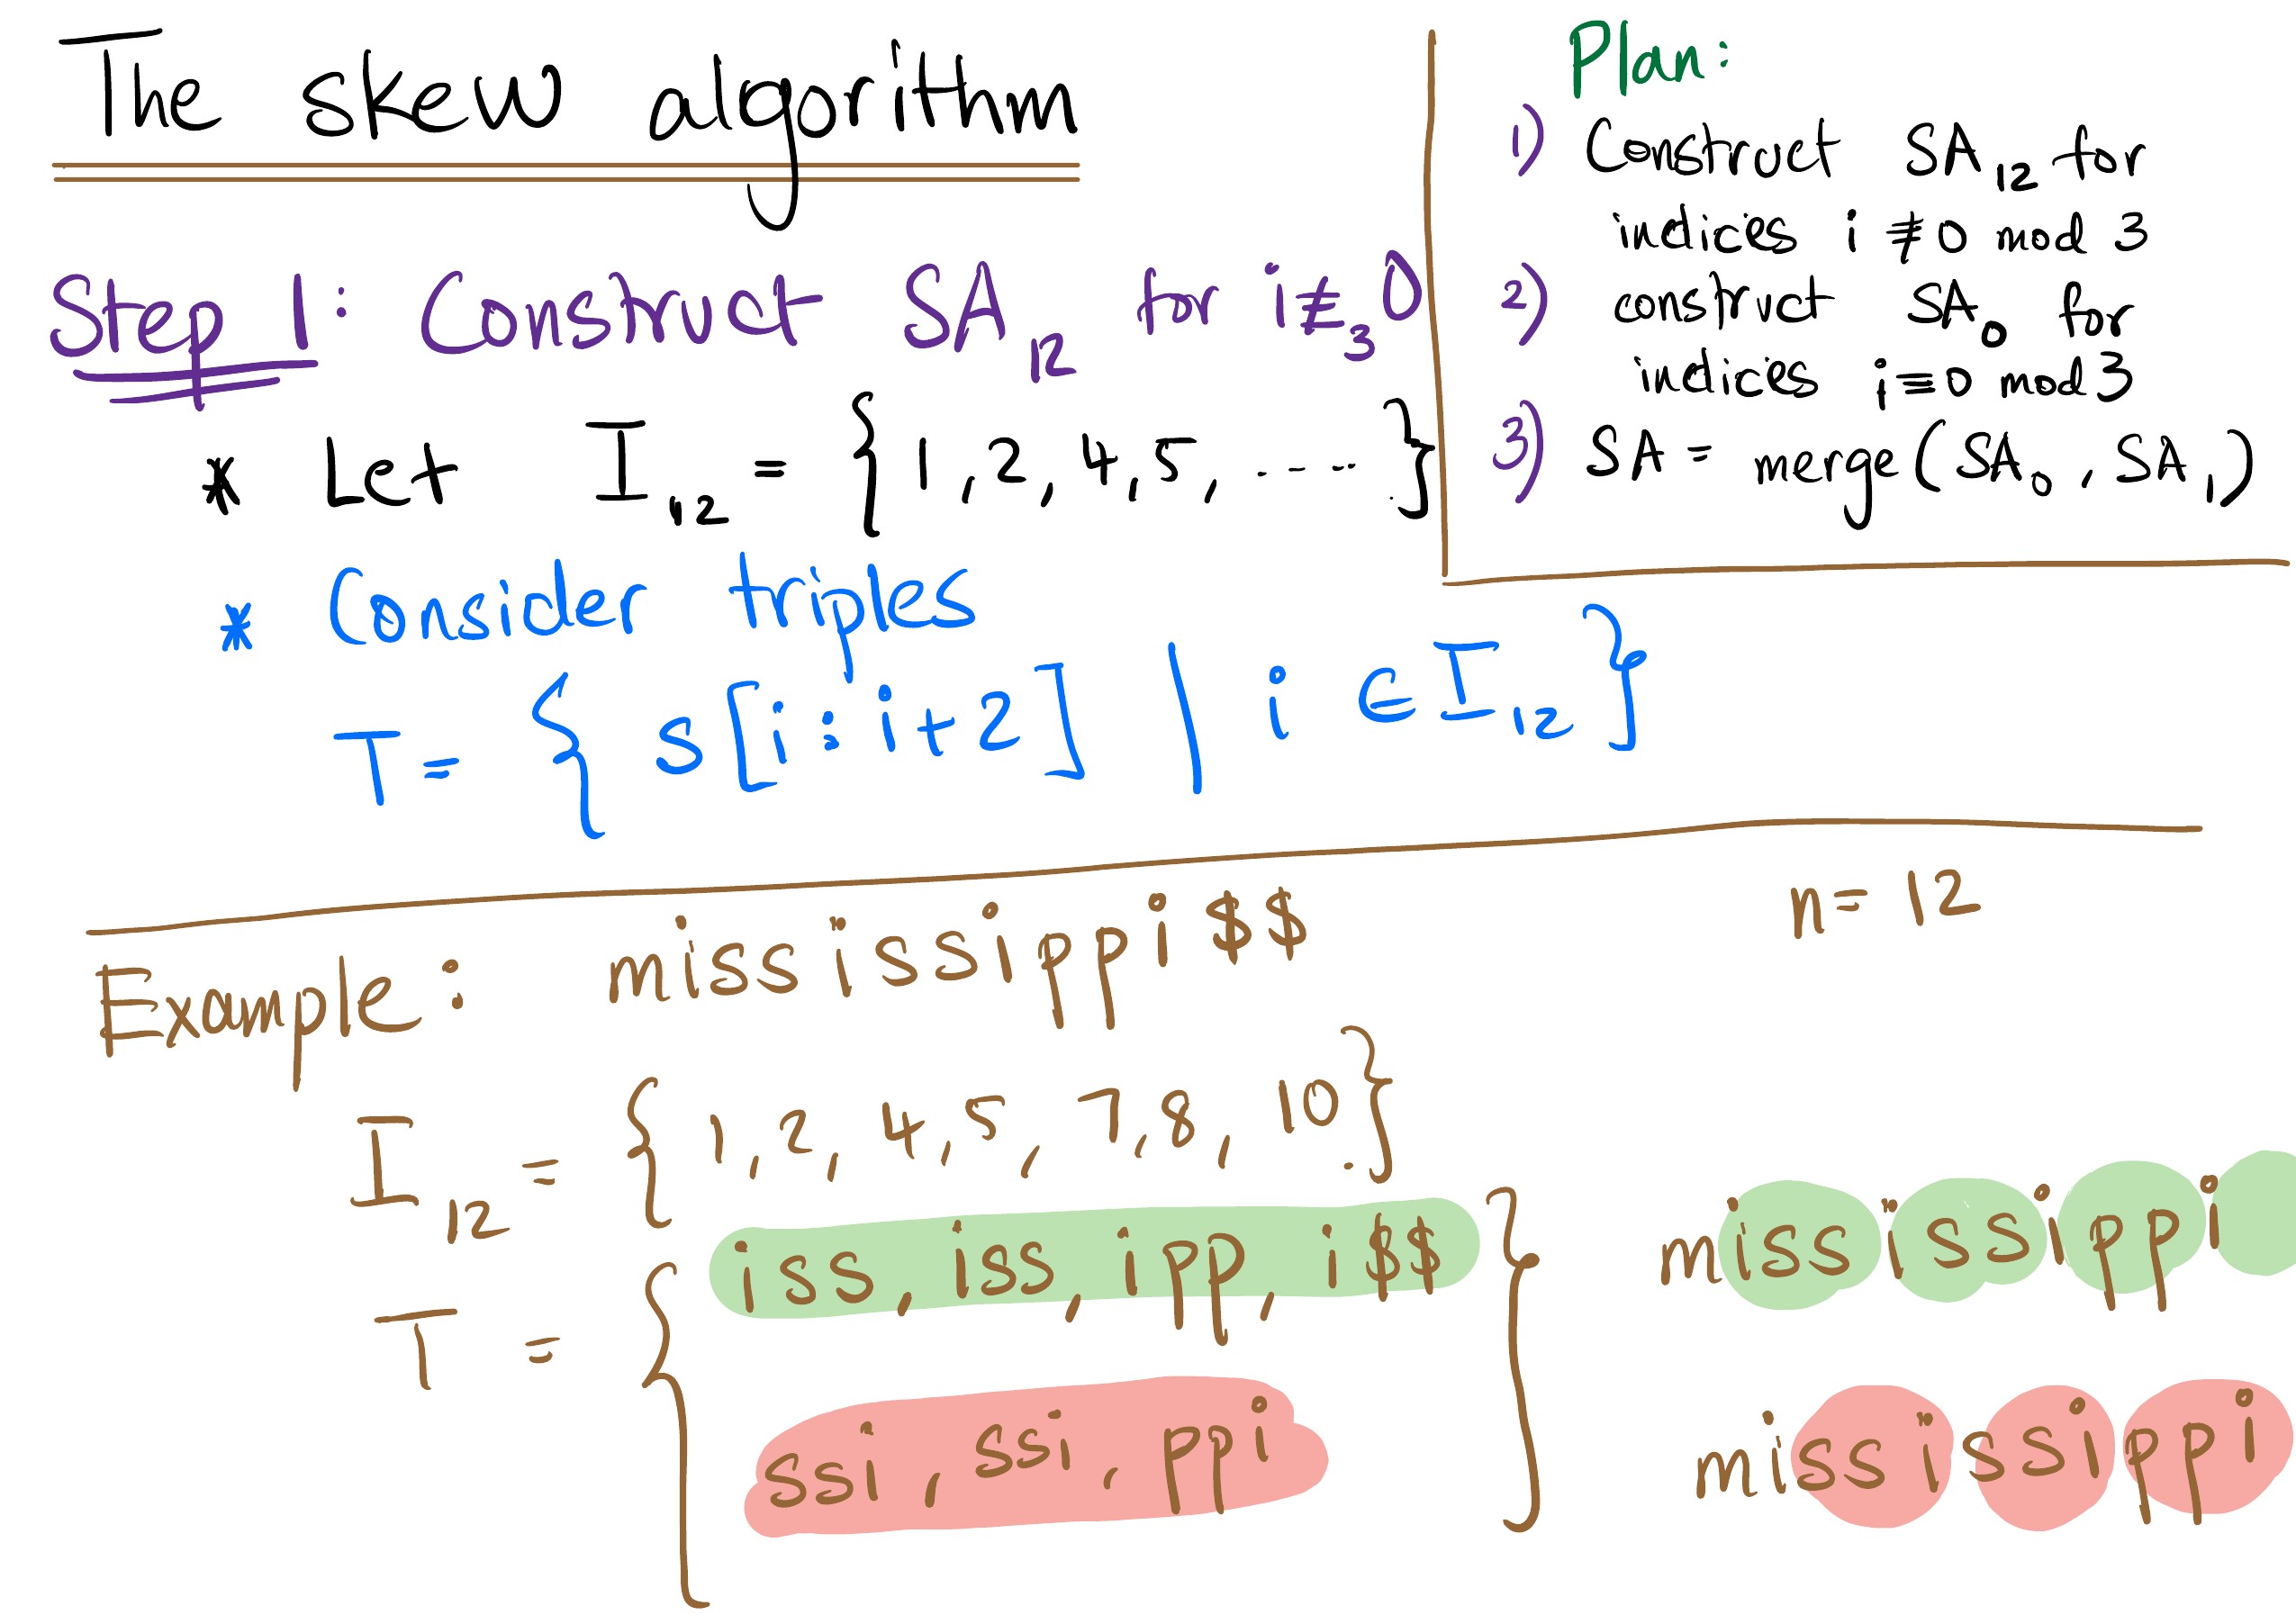 The skew algorithm
Step 1: Construct SA₁₂ for i≢₃0
* Let I₁₂ = {1,2,4,5,.....}
* Consider triples
T= { s[i:i+2] | i ∈ I₁₂ }
Plan:
1) Construct SA₁₂ for
indices i ≢ 0 mod 3
2) construct SA₀ for
indices i≡0 mod 3
3) SA = merge(SA₀, SA₁)
n= 12
Example: mississippi$$
I₁₂ = {1,2,4,5,7,8,10.}
T = { iss, iss, ipp, i$$
ssi, ssi, ppi }
mississippi
mississippi